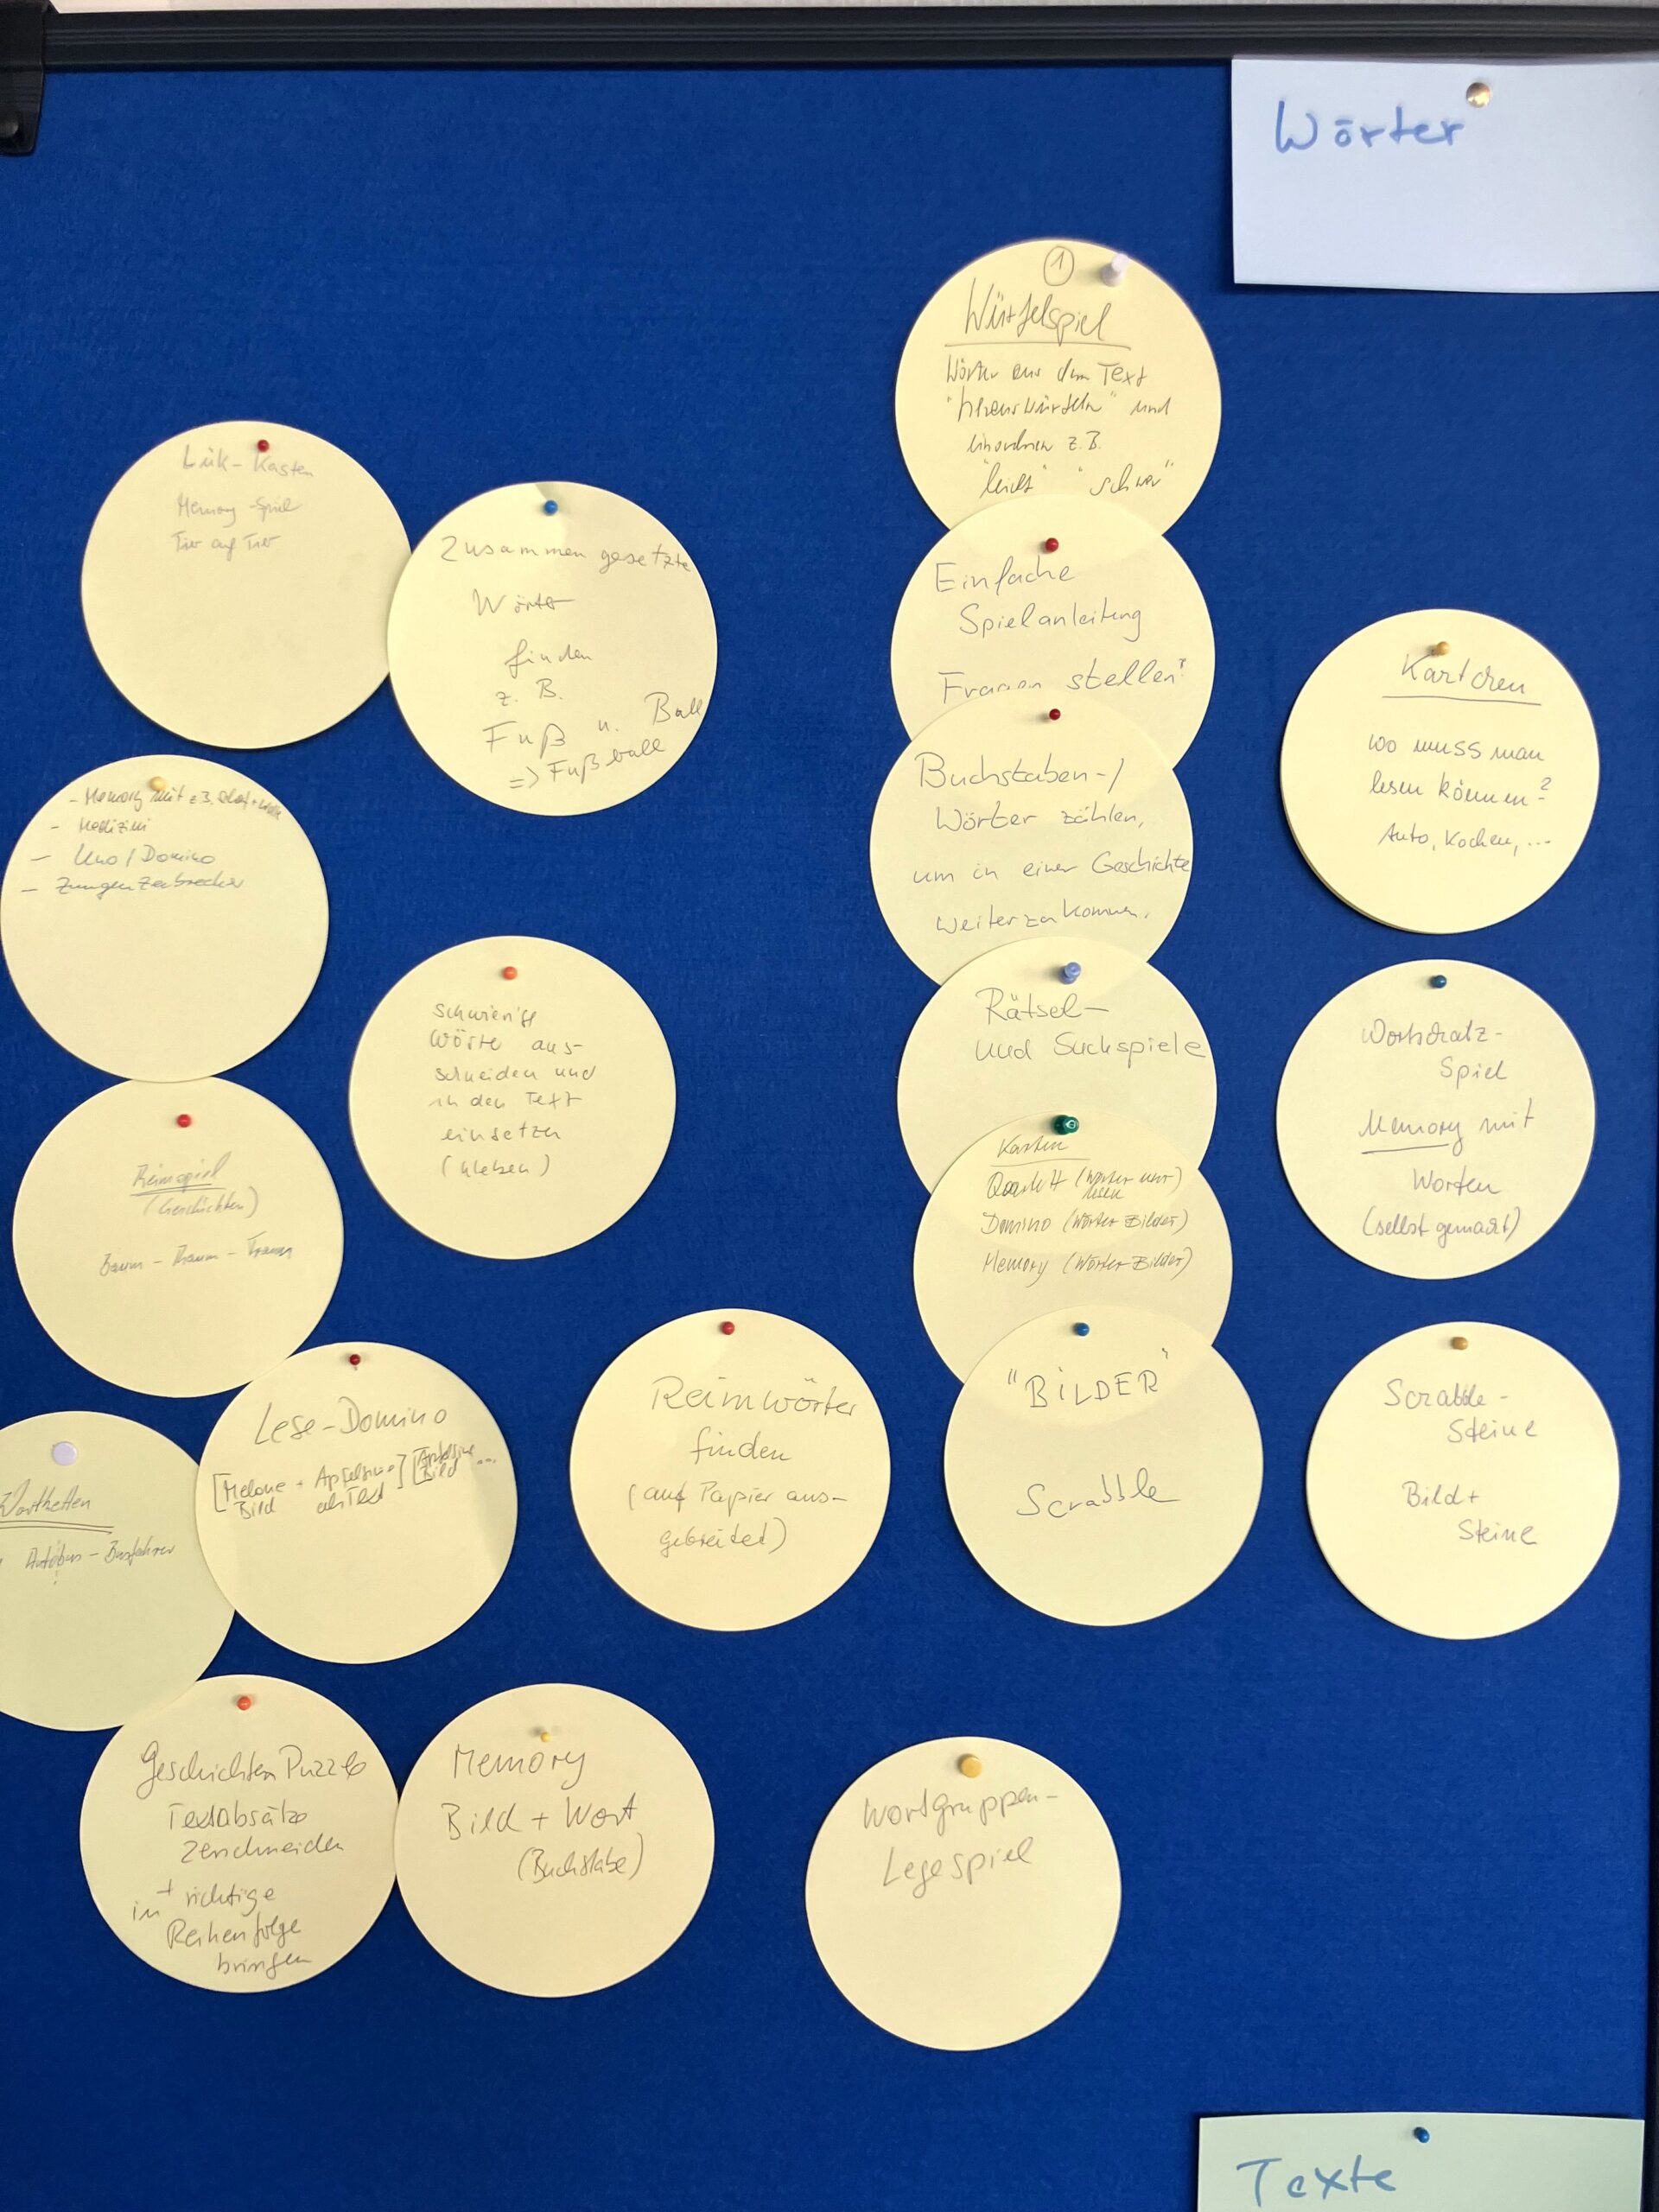 Wörter
①
Würfelspiel
Wörter aus dem Text
"herauswürfeln" und
einordnen z.B.
"leicht" "schwer"
Einfache
Spielanleitung
Fragen stellen?
Buchstaben-/
Wörter zählen,
um in einer Geschichte
weiterzukommen.
Rätsel-
und Suchspiele
Karten
Quartett (Wörter nur)
lesen
Domino (Wörter Bilder)
Memory (Wörter Bilder)
"BILDER"
Scrabble
Kärtchen
wo muss man
lesen können?
Auto, Kochen, ...
Wortschatz-
Spiel
Memory mit
Worten
(selbst gemacht)
Scrabble-
Steine
Bild+
Steine
Lük-Kasten
Memory-Spiel
Tier auf Tier
Zusammengesetzte
Wörter
finden
z. B.
Fuß u. Ball
=> Fußball
- Memory mit z.B.
- Medizini
- Uno/Domino
- Zungenzerbrecher
schwierige
Wörter aus-
schneiden und
in den Text
einsetzen
(kleben)
Reimspiel
(Geschichten)
Baum - Traum -
Lese-Domino
[Melone + Apfelsine] [Apfelsine ...
Bild als Text Bild
Reimwörter
finden
(auf Papier aus-
gebreitet)
Wortketten
Autobus - Busfahrer
Geschichten Puzzle
Textabsätze
zerschneiden
+ richtige
in Reihenfolge
bringen
Memory
Bild + Wort
(Buchstabe)
Wortgruppen-
Legespiel
Texte